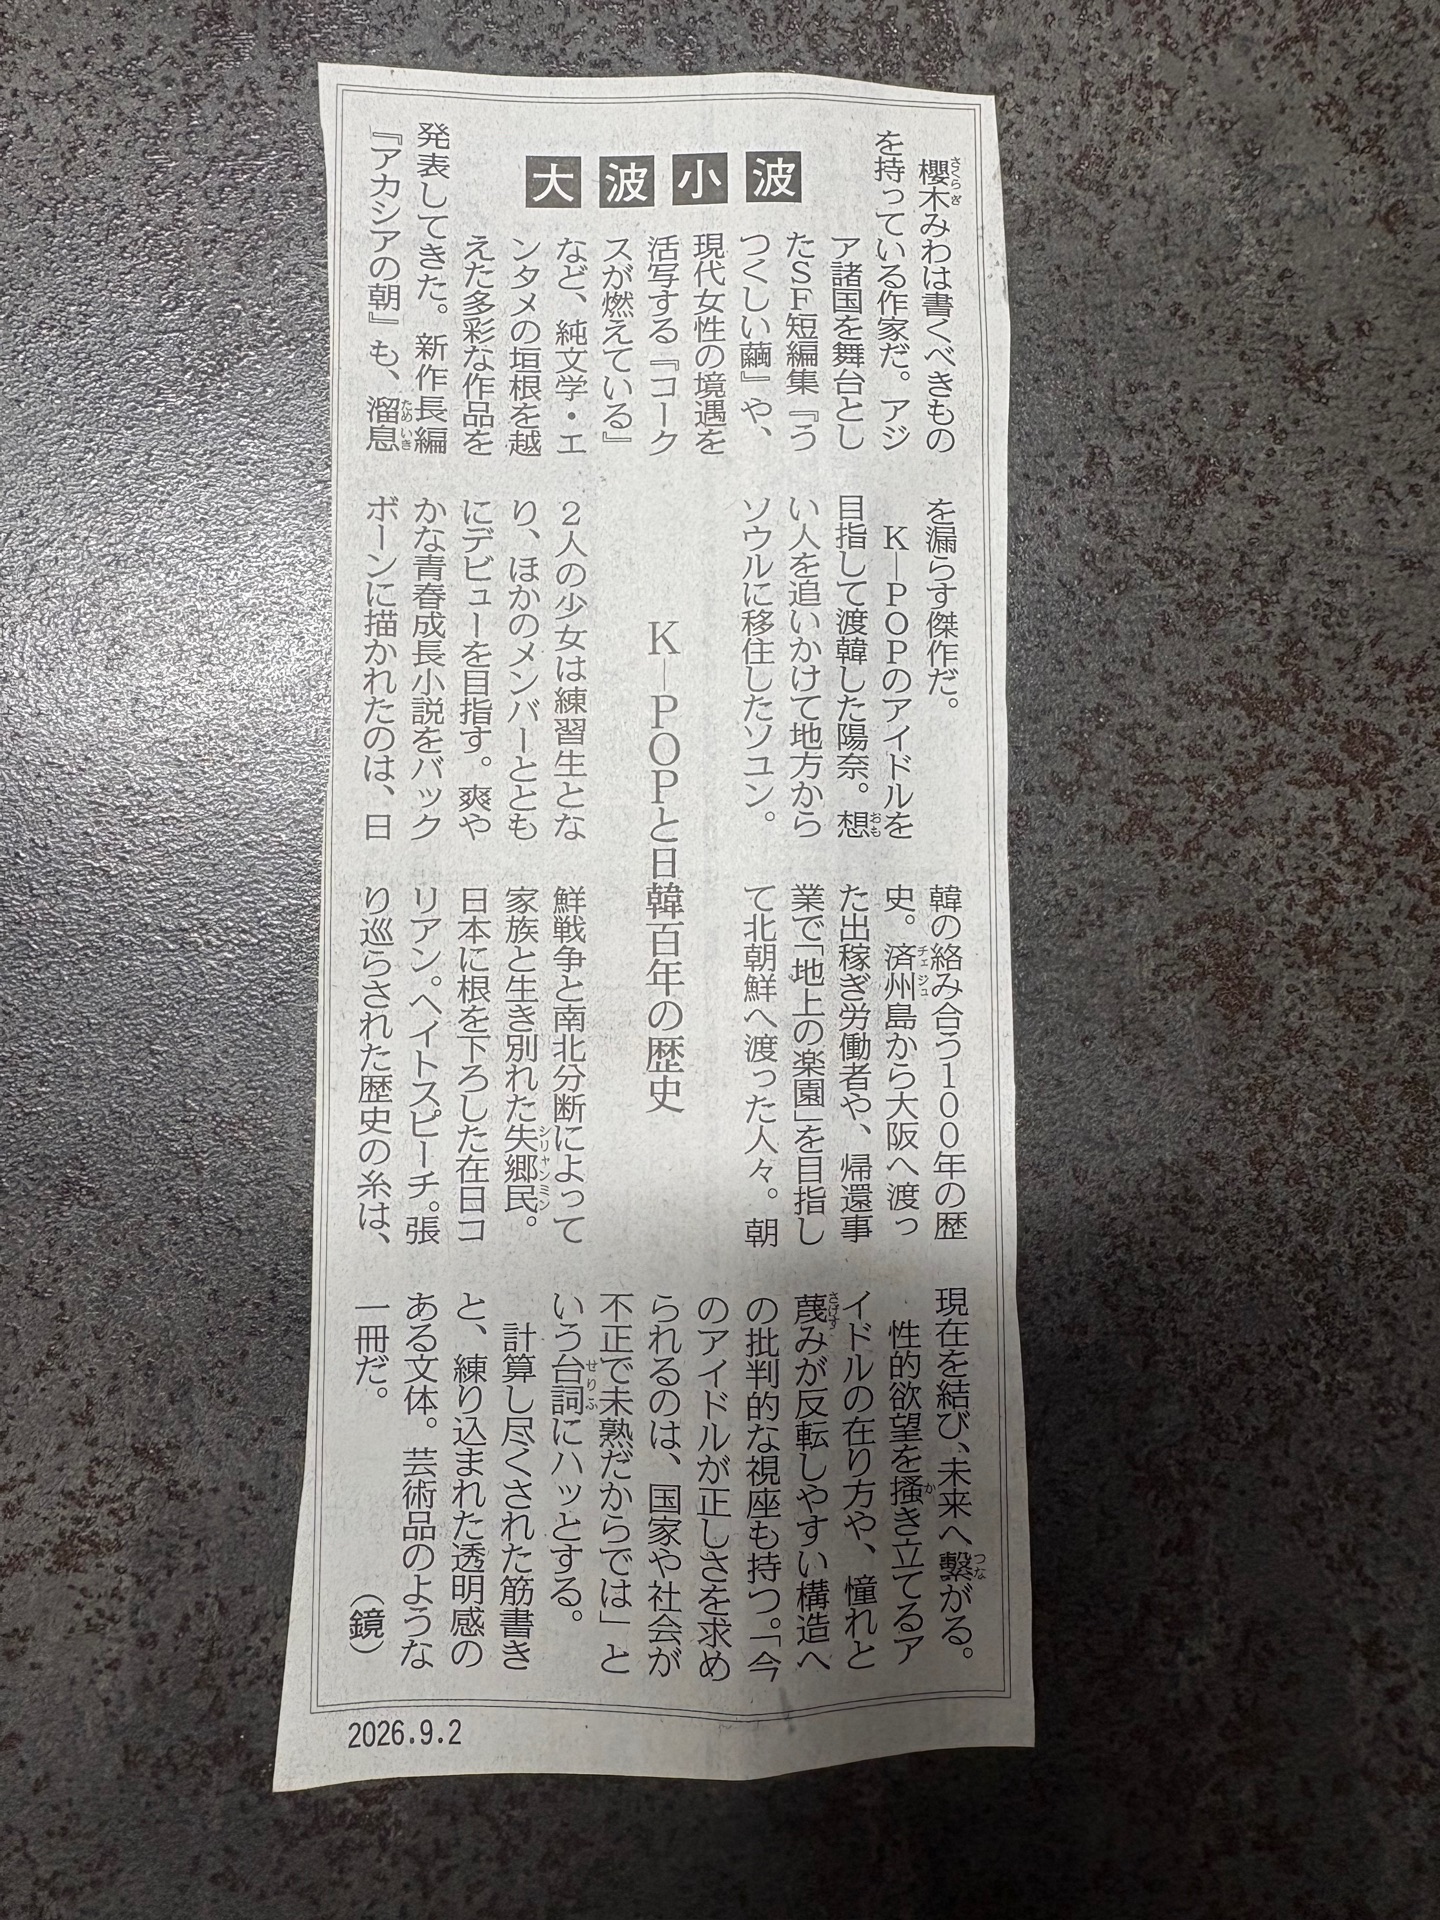 大波小波
K―POPと日韓百年の歴史
櫻木みわは書くべきもの
を持っている作家だ。アジ
ア諸国を舞台とし
たSF短編集『う
つくしい繭』や、
現代女性の境遇を
活写する『コーク
スが燃えている』
など、純文学・エ
ンタメの垣根を越
えた多彩な作品を
発表してきた。新作長編
『アカシアの朝』も、溜息
を漏らす傑作だ。
K―POPのアイドルを
目指して渡韓した陽奈。想
い人を追いかけて地方から
ソウルに移住したソユン。
2人の少女は練習生とな
り、ほかのメンバーととも
にデビューを目指す。爽や
かな青春成長小説をバック
ボーンに描かれたのは、日
韓の絡み合う100年の歴
史。済州島から大阪へ渡っ
た出稼ぎ労働者や、帰還事
業で「地上の楽園」を目指し
て北朝鮮へ渡った人々。朝
鮮戦争と南北分断によって
家族と生き別れた失郷民。
日本に根を下ろした在日コ
リアン。ヘイトスピーチ。張
り巡らされた歴史の糸は、
現在を結び、未来へ繫がる。
性的欲望を搔き立てるア
イドルの在り方や、憧れと
蔑みが反転しやすい構造へ
の批判的な視座も持つ。「今
のアイドルが正しさを求め
られるのは、国家や社会が
不正で未熟だからでは」と
いう台詞にハッとする。
計算し尽くされた筋書き
と、練り込まれた透明感の
ある文体。芸術品のような
一冊だ。
（鏡）
2026.9.2